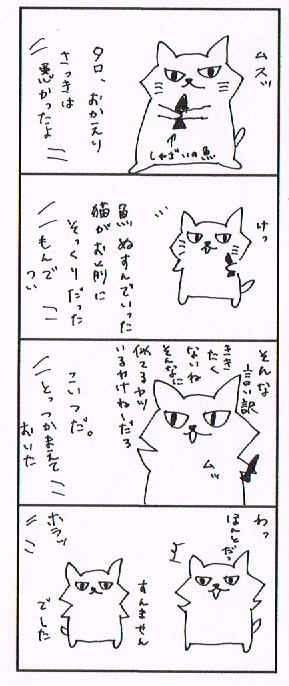 ムスッ
タロ、おかえり
さっきは
悪かったよ
しゃざいの魚
けっ
魚ぬすんでいった
猫がお前に
そっくりだった
もんで
つい
そんな
言い訳
ききたく
ないね
そんなに
似てるヤツ
いるわけねーだろ
ムッ
こいつだ。
とっつかまえて
おいた
わっ
ほんとだっ
すんません
でした
ホラッ